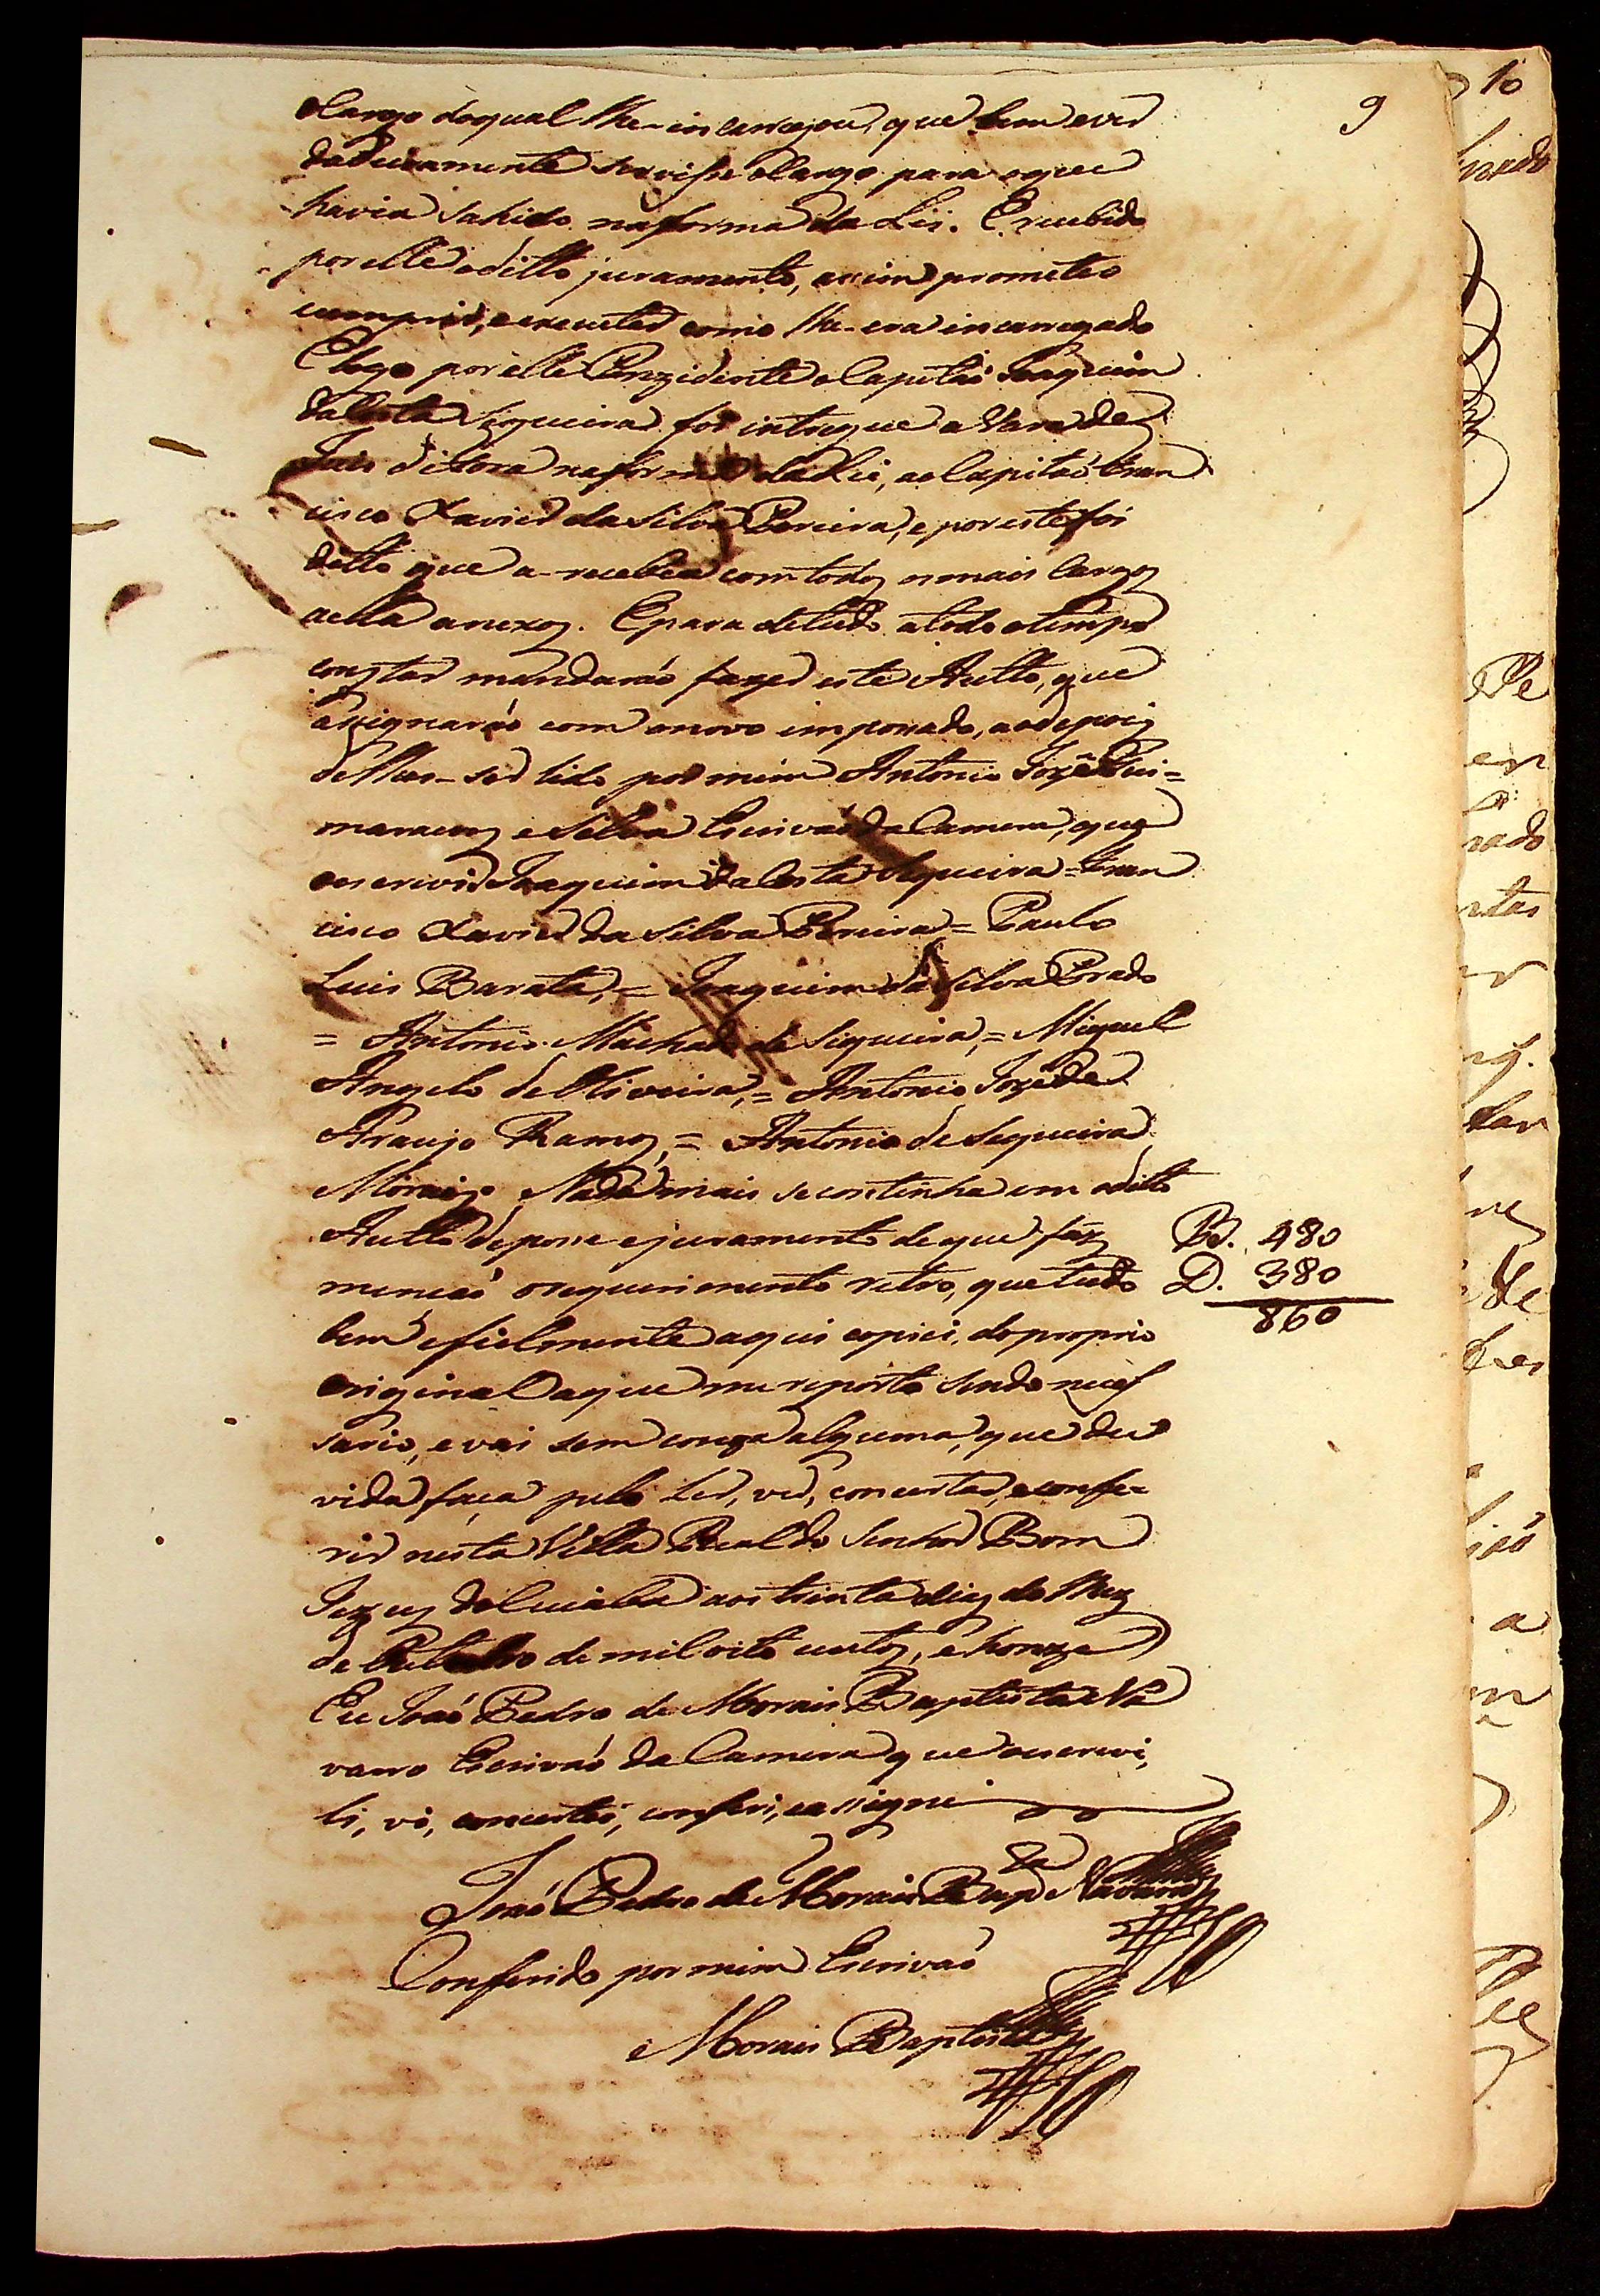 9
oCargo doqual lhe-incarregou, que bem ever
dadeiramente servisse oCargo para oque
havia sahido naforma da Lei. E recebido
porelle oditto juramento, assim prometeo
cumprir, e executar como lhe-era incarregado
E logo por elle Prezidente oCapitaõ Joaquim
daCosta Siqueira foi intregue a Vara de
Juis de Fora naforma daLei, aoCapitaõ Fran
cisco Xavier da Silva Pereira, e por este foi
ditto que a-recebia com todos os mais Cargos
a ella anexos. E para detudo atodo otempo
constar mandaraõ fazer este Autto, que
assignaraõ com onovo imposado, ao depois
delhes-ser lido por mim Antonio Jozê Gui=
maraens e Silva Escrivaõ da Camera, que
oescrevi Joaquim da Costa Siqueira = Fran
cisco Xavier da Silva Pereira = Paulo
Luis Barata, = Joaquim da Silva Prado
= Antonio Machado de Siqueira, = Miguel
Angelo de Oliveira, = Antonio Jozé de
Araujo Ramos, = Antonio de Sequeira
Morais. Nada mais secontinha em oditto
Autto de posse e juramento de que fáz
mencaõ orequerimento retro, que tudo
bem efielmente aqui copiei, do proprio
original aque me reporto sendo neces
sario, e vai sem couza alguma, que du
vida faça pelo ler, ver, concertar, e confe=
rir nesta Villa Real do Senhor Bom
Jezus do Cuiabá aos trinta dias do Mez
de Outubro de mil oito centos, e honze
Eu Joaõ Pedro de Morais Baptista Na
varro Escrivaõ da Camera que oescrevi,
li, vi, concertei, conferi, eassignei
B. 480
D. 380
860
Joaõ Pedro de Morais Bap.ta Navarro
Conferido por mim Escrivaõ
Morais Baptista
10